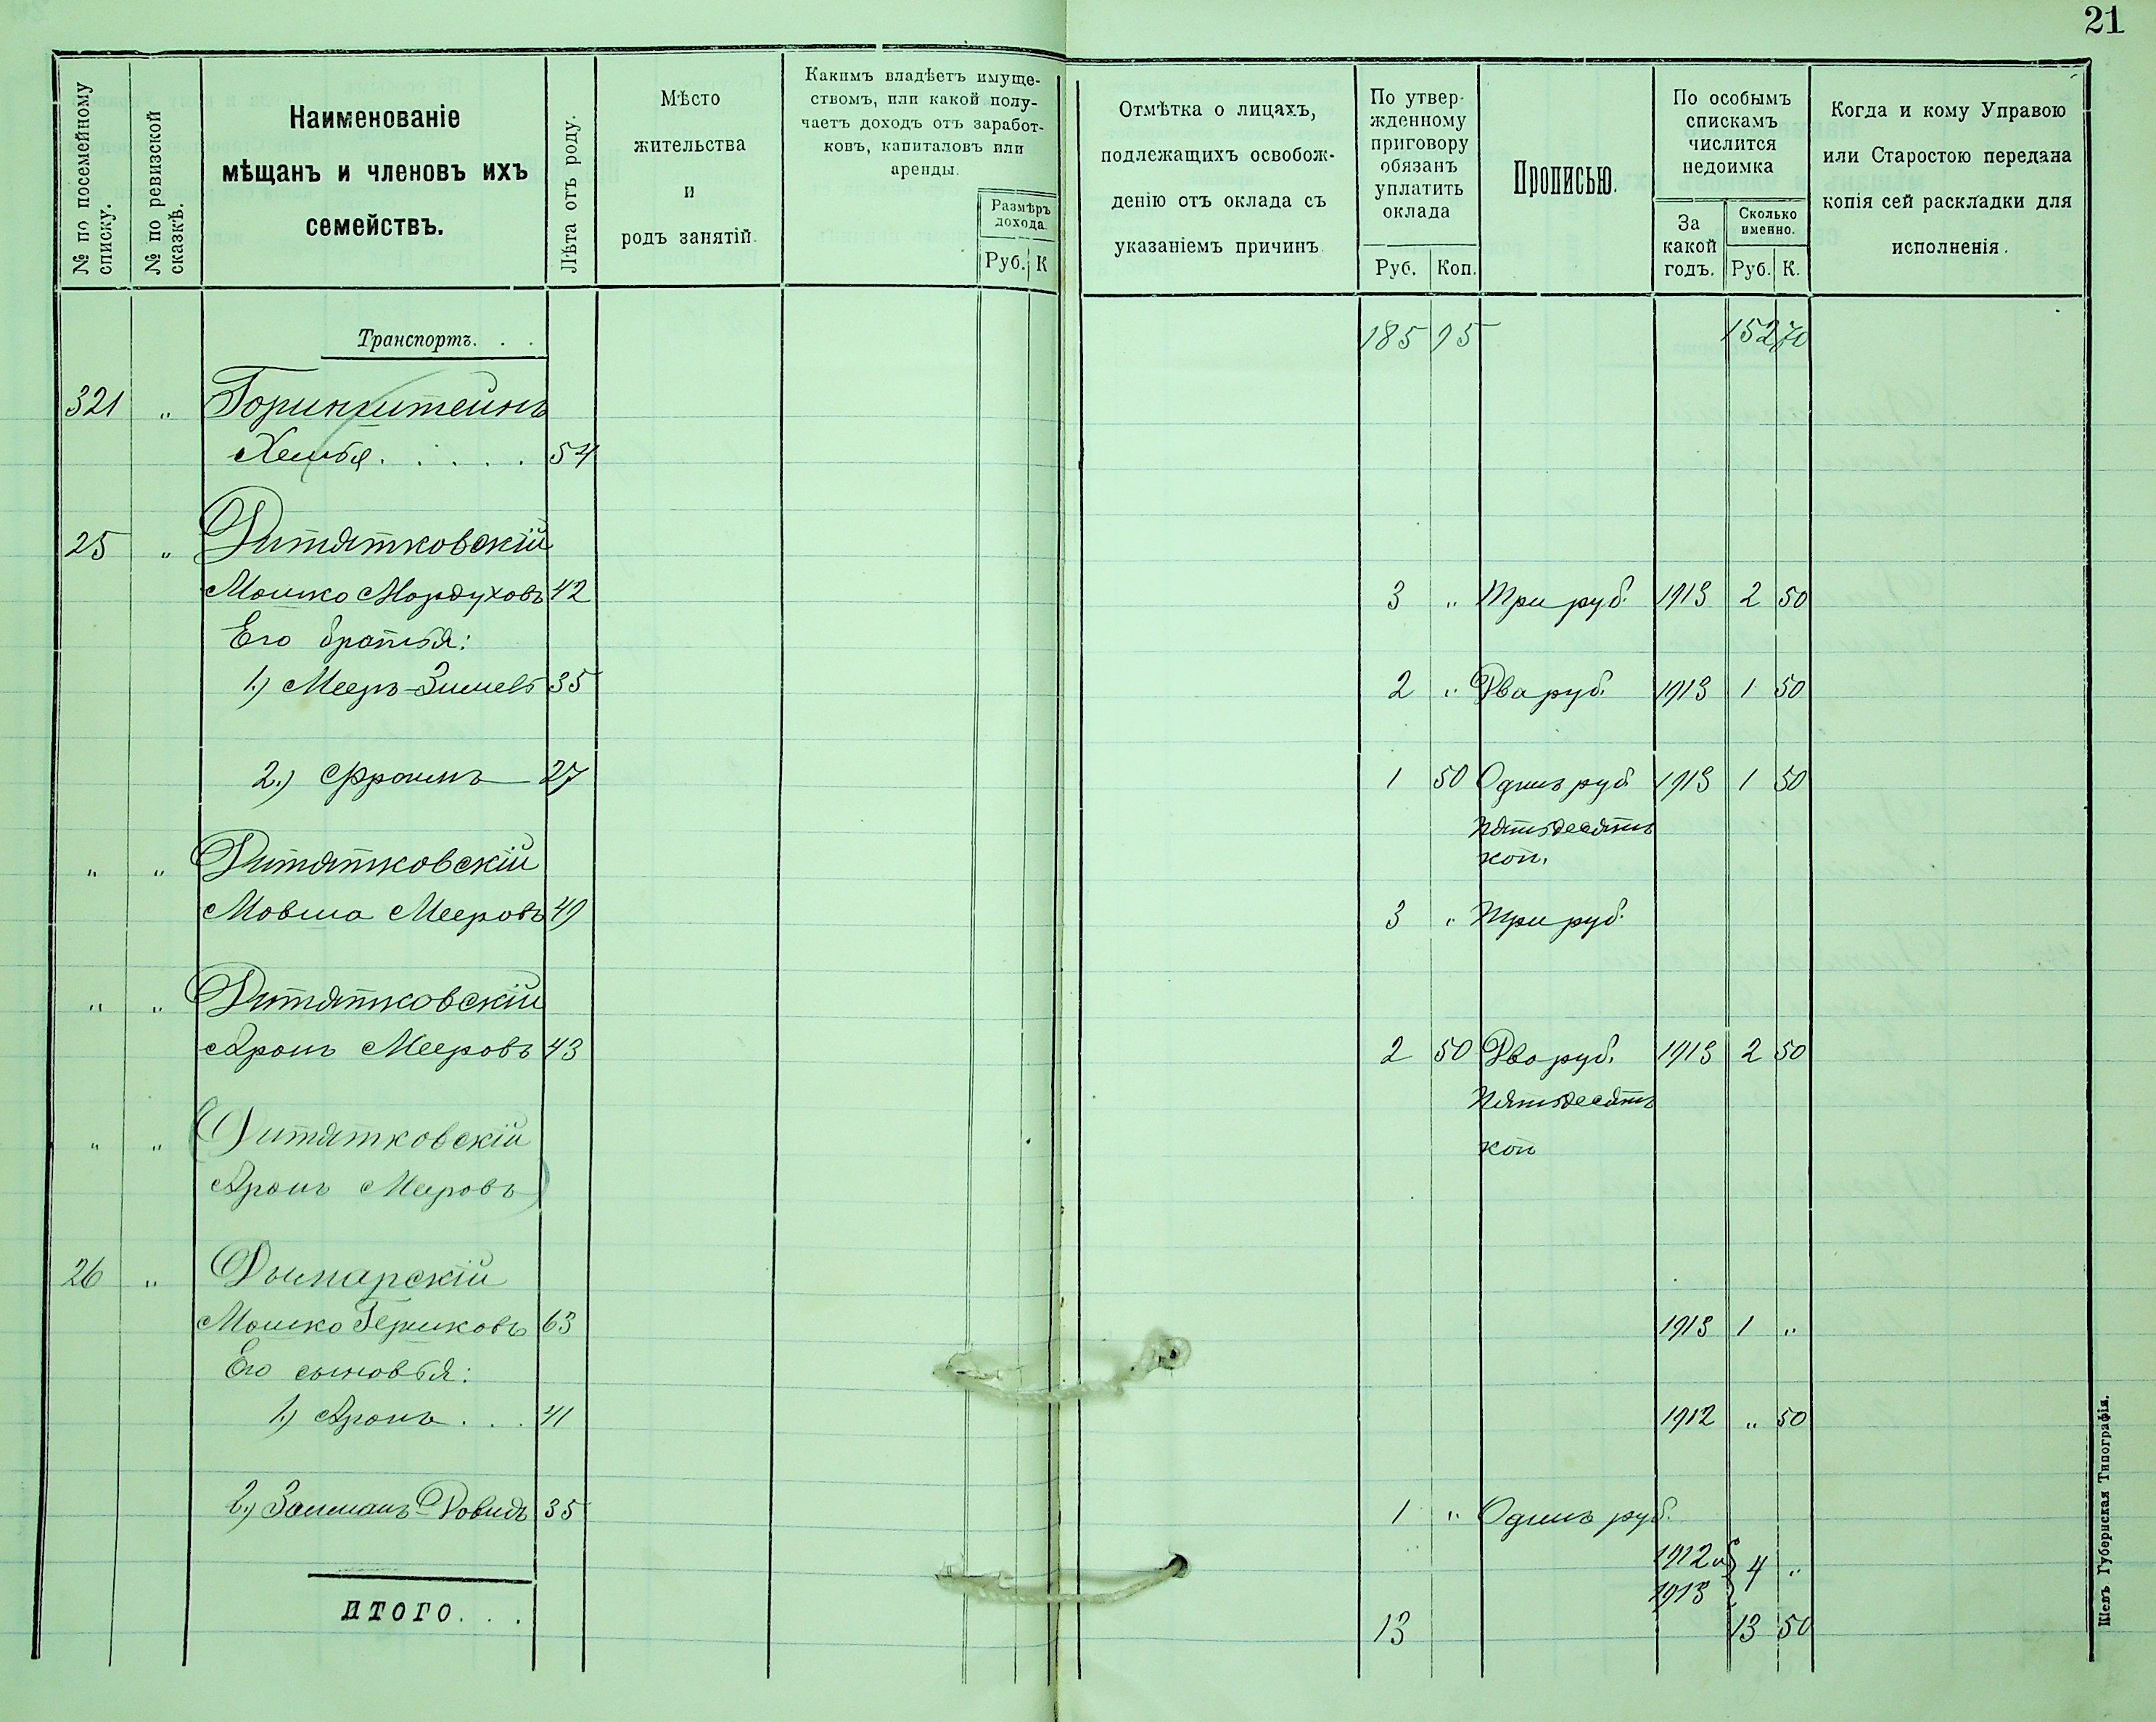 21
№ по посемейному списку.
№ по ревизской сказкѣ.
Наименованіе
мѣщанъ и членовъ ихъ
семействъ.
Лѣта отъ роду.
Мѣсто
жительства
и
родъ занятій.
Какимъ владѣетъ имуще-
ствомъ, или какой полу-
чаетъ доходъ отъ заработ-
ковъ, капиталовъ или
аренды.
Размѣръ
дохода.
Руб. К
Отмѣтка о лицахъ,
подлежащихъ освобож-
денію отъ оклада съ
указаніемъ причинъ.
По утвер-
жденному
приговору
обязанъ
уплатить
оклада
Руб. Коп.
Прописью.
По особымъ
спискамъ
числится
недоимка
За
какой
годъ.
Сколько
именно.
Руб. К.
Когда и кому Управою
или Старостою передана
копія сей раскладки для
исполненія.
Транспортъ. . . 185 95 152 70
321 "
54
25 " Дитятковскій
Мошко Мордуховъ 42 3 " Три руб. 1913 2 50
Его братья:
1.) Мееръ- 35 2 " Два руб. 1913 1 50
2.) Фроимъ 27 1 50 Одинъ руб 1913 1 50
пятьдесятъ
коп.
" " Дитятковскій
Мовша Мееровъ 49 3 " Три руб.
" " Дитятковскій
Аронъ Мееровъ 43 2 50 Два руб. 1913 2 50
пятьдесятъ
коп
" " (Дитятковскій
Аронъ Мееровъ)
26 " Дымарскій
Мошко Гершковъ 63 1913 1 "
Его сыновья:
1.) Аронъ . . . 41 1912 " 50
2.) Залманъ-Довидъ 35 1 " Одинъ руб.
1912 и } 4 "
1913
ИТОГО. . . 13 13 50
Кіевъ Губернская Типографія.